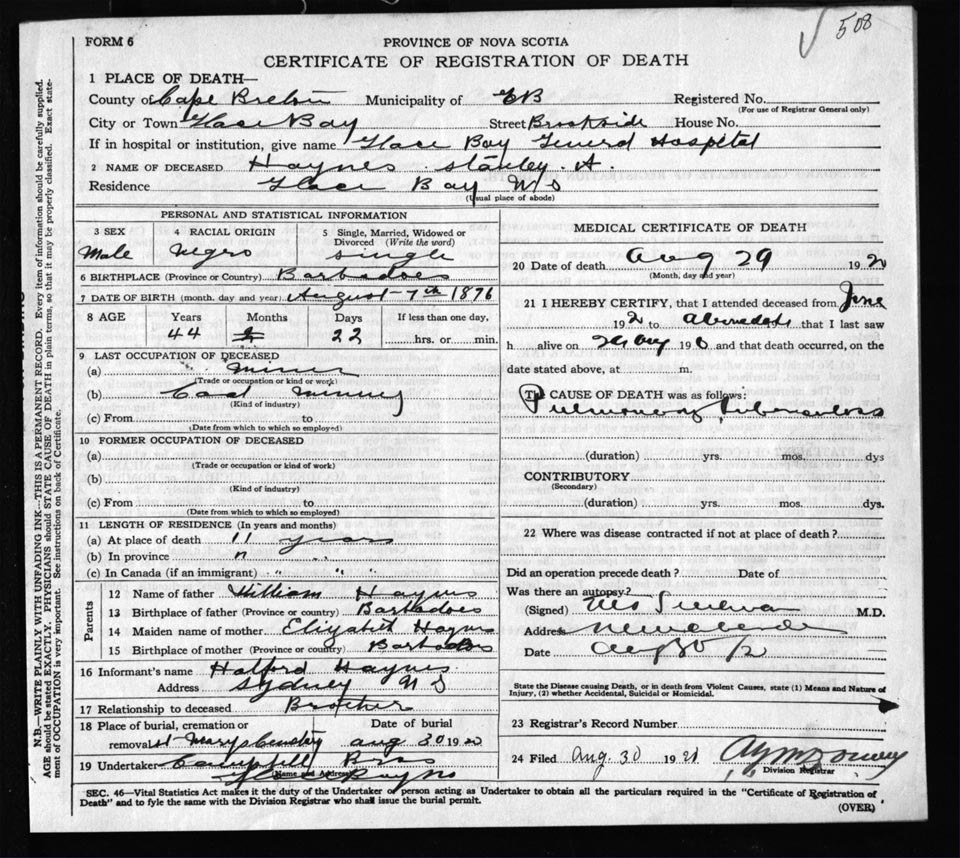 508
FORM 6
PROVINCE OF NOVA SCOTIA
CERTIFICATE OF REGISTRATION OF DEATH
N.B.—WRITE PLAINLY WITH UNFADING INK—THIS IS A PERMANENT RECORD. Every item of information should be carefully supplied.
AGE should be stated EXACTLY. PHYSICIANS should STATE CAUSE OF DEATH in plain terms, so that it may be properly classified. Exact state-
ment of OCCUPATION is very important. See instructions on back of Certificate.
1 PLACE OF DEATH—
County of Cape Breton Municipality of CB Registered No.
(For use of Registrar General only)
City or Town Glace Bay Street Brookside House No.
If in hospital or institution, give name Glace Bay General Hospital
2 NAME OF DECEASED Haynes Stanley A.
Residence Glace Bay NS
(Usual place of abode)
PERSONAL AND STATISTICAL INFORMATION
3 SEX 4 RACIAL ORIGIN 5 Single, Married, Widowed or
Divorced (Write the word)
Male Negro Single
6 BIRTHPLACE (Province or Country) Barbadoes
7 DATE OF BIRTH (month, day and year) August 7th 1876
8 AGE Years Months Days If less than one day,
44 22 hrs. or min.
9 LAST OCCUPATION OF DECEASED
(a) Miner
(Trade or occupation or kind or work)
(b) Coal Mining
(Kind of industry)
(c) From to
(Date from which to which so employed)
10 FORMER OCCUPATION OF DECEASED
(a)
(Trade or occupation or kind of work)
(b)
(Kind of industry)
(c) From to
(Date from which to which so employed)
11 LENGTH OF RESIDENCE (In years and months)
(a) At place of death 11 years
(b) In province " "
(c) In Canada (if an immigrant) " " "
Parents
12 Name of father William Haynes
13 Birthplace of father (Province or country) Barbadoes
14 Maiden name of mother Elizabeth Haynes
15 Birthplace of mother (Province or country) Barbadoes
16 Informant's name Halford Haynes
Address Sydney NS
17 Relationship to deceased Brother
18 Place of burial, cremation or Date of burial
removal St Marys Cemetery Aug 30 1920
19 Undertaker Campbell Bros
Name and Address
MEDICAL CERTIFICATE OF DEATH
20 Date of death Aug 29 1920
(Month, day and year)
21 I HEREBY CERTIFY, that I attended deceased from June
192 to that I last saw
h alive on 19 and that death occurred, on the
date stated above, at m.
The CAUSE OF DEATH was as follows:
Pulmonary Tuberculosis
(duration) yrs. mos. dys
CONTRIBUTORY
(Secondary)
(duration) yrs. mos. dys.
22 Where was disease contracted if not at place of death?
Did an operation precede death? Date of
Was there an autopsy?
(Signed) M.D.
Address
Date Aug 30
State the Disease causing Death, or in death from Violent Causes, state (1) Means and Nature of
Injury, (2) whether Accidental, Suicidal or Homicidal.
23 Registrar's Record Number
24 Filed Aug. 30 19
Division Registrar
SEC. 46—Vital Statistics Act makes it the duty of the Undertaker or person acting as Undertaker to obtain all the particulars required in the "Certificate of Registration of
Death" and to fyle the same with the Division Registrar who shall issue the burial permit.
(OVER)